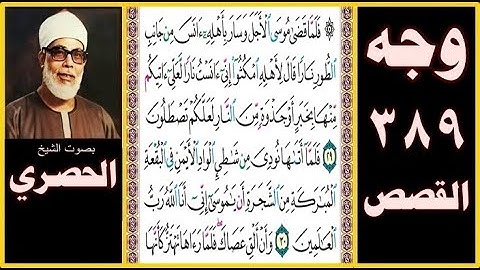 وجه
٣٨٩
القصص
بصوت الشيخ
الحصري
فَلَمَّا قَضَىٰ مُوسَى ٱلْأَجَلَ وَسَارَ بِأَهْلِهِۦٓ ءَانَسَ مِن جَانِبِ
ٱلطُّورِ نَارًا قَالَ لِأَهْلِهِ ٱمْكُثُوٓا۟ إِنِّىٓ ءَانَسْتُ نَارًا لَّعَلِّىٓ ءَاتِيكُم
مِّنْهَا بِخَبَرٍ أَوْ جَذْوَةٍ مِّنَ ٱلنَّارِ لَعَلَّكُمْ تَصْطَلُونَ
٢٩ فَلَمَّآ أَتَىٰهَا نُودِىَ مِن شَٰطِئِ ٱلْوَادِ ٱلْأَيْمَنِ فِى ٱلْبُقْعَةِ
ٱلْمُبَٰرَكَةِ مِنَ ٱلشَّجَرَةِ أَن يَٰمُوسَىٰٓ إِنِّىٓ أَنَا ٱللَّهُ رَبُّ
ٱلْعَٰلَمِينَ ٣٠ وَأَنْ أَلْقِ عَصَاكَ فَلَمَّا رَءَاهَا تَهْتَزُّ كَأَنَّهَا